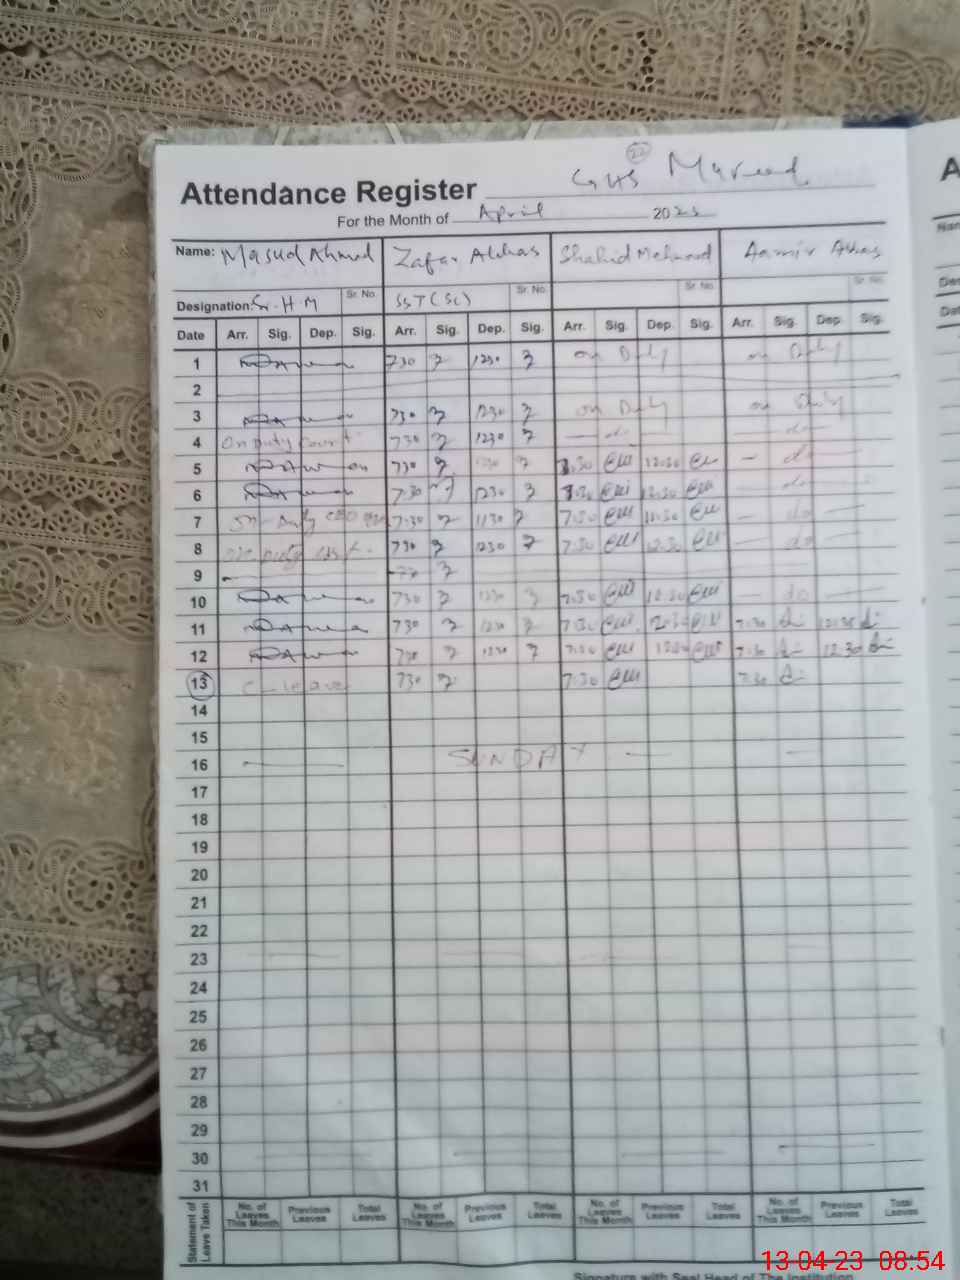 22
Attendance Register GHS Mureed
For the Month of April 2023
Name: Masud Ahmed Zafar Abbas Shahid Mehmood Aamir Abbas
Designation: Sr. H. M Sr. No. SST (Sc) Sr. No. Sr. No. Sr. No.
Date Arr. Sig. Dep. Sig. Arr. Sig. Dep. Sig. Arr. Sig. Dep. Sig. Arr. Sig. Dep. Sig.
1 730 1230 on Duty on Duty
2
3 730 1230 on Duty on Duty
4 On Duty Court 730 1230 — do — — do —
5 730 7.30 12.30 — do —
6 7.30 1230 7.30 12.30 — do —
7 on Duty 7.30 1130 7.30 11.30 — do —
8 730 1230 7.30 12.30 — do —
9
10 730 1230 7.30 12.30 — do —
11 730 1230 7.30 12.30 7.30 12.30
12 730 1230 7.30 12.30 7.30 12.30
13 C. leave 730 7.30 7.30
14
15
16 — SUNDAY — —
17
18
19
20
21
22
23
24
25
26
27
28
29
30
31
Statement of Leave Taken No. of Leaves This Month Previous Leaves Total Leaves No. of Leaves This Month Previous Leaves Total Leaves No. of Leaves This Month Previous Leaves Total Leaves No. of Leaves This Month Previous Leaves Total Leaves
Signature with Seal Head of The Institution
13-04-23 08:54